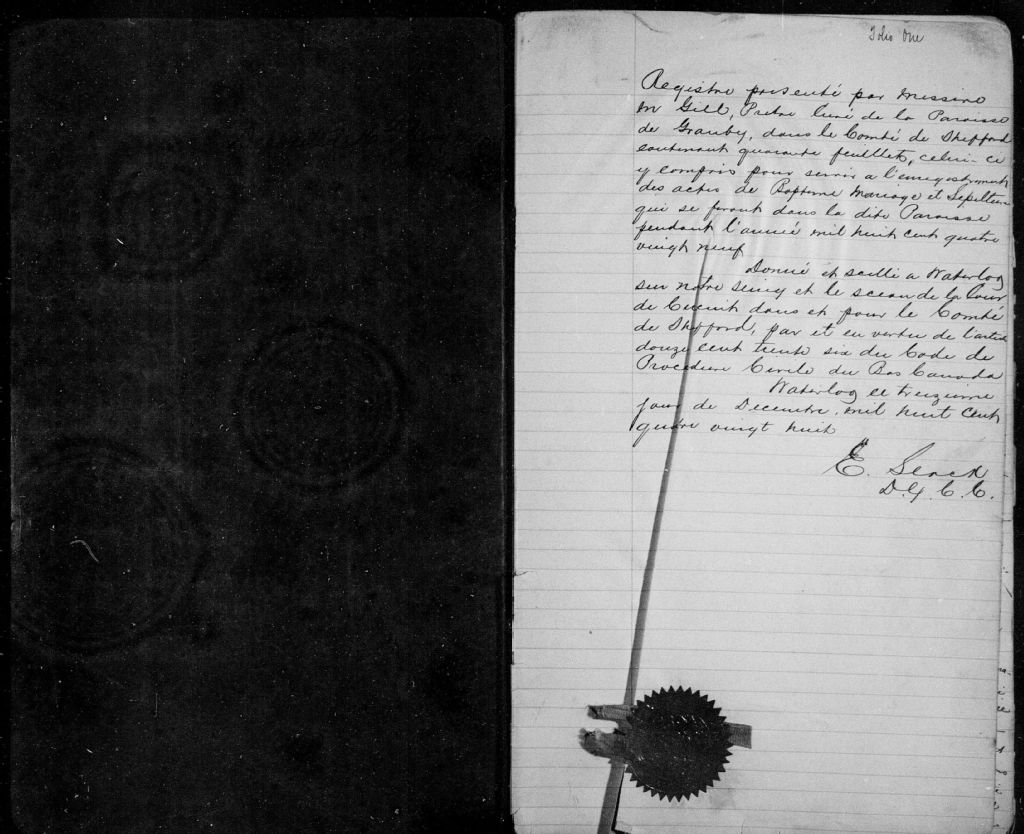 Folio One
Registre presenté par Messire
M Gill, Pretre Curé de la Paroisse
de Granby, dans le Comté de Shefford
contenant quarante feuillets, celui-ci
y compris pour servir a l'enregistrement
des actes de Bapteme Mariage et Sepulture
qui se feront dans la dite Paroisse
pendant l'année mil huit cent quatre
vingt neuf
Donné et scellé a Waterloo
sur notre seing et le sceau de la Cour
de Circuit dans et pour le Comté
de Shefford, par et en vertu de l'article
douze cent trente six du Code de
Procedure Civile du Bas Canada
Waterloo ce treizieme
jour de Decembre mil huit cent
quatre vingt huit
E.
D. G. C. C.